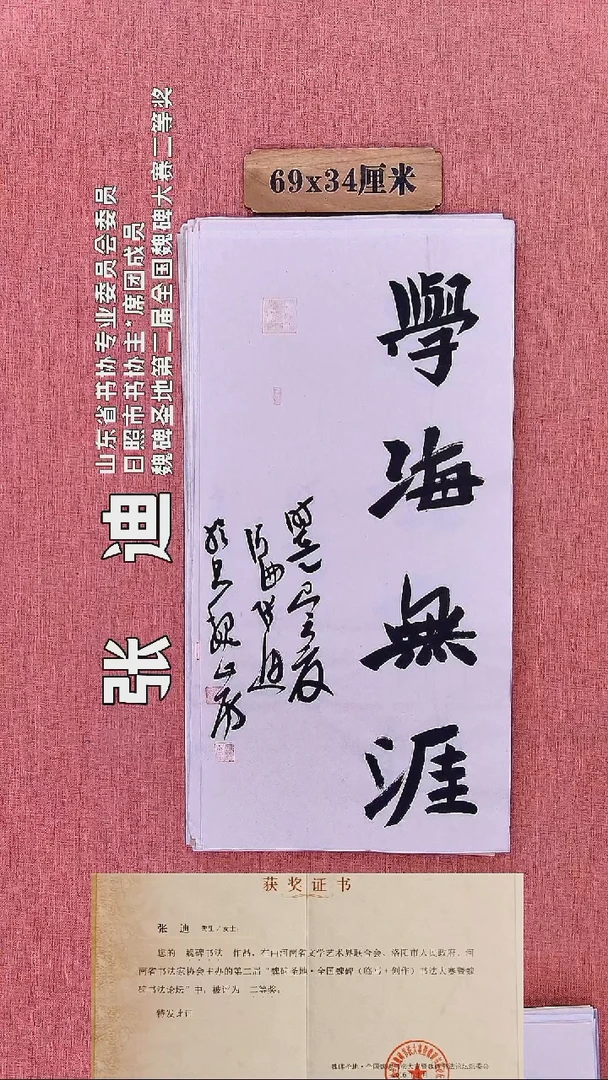 69x34厘米
學海無涯
山东省书协专业委员会委员
日照市书协主*席团成员
魏碑圣地第二届全国魏碑大赛二等奖
张 迪
获奖证书
张 迪 先生/女士:
您的 魏碑书法 作品，在由河南省文学艺术界联合会、洛阳市人民政府、河
南省书法家协会主办的第二届“魏碑圣地·全国魏碑（临写+创作）书法大赛暨魏
碑书法论坛”中，被评为 二等奖。
特发此证
魏碑圣地·全国魏碑书法大赛暨魏碑书法论坛组委会